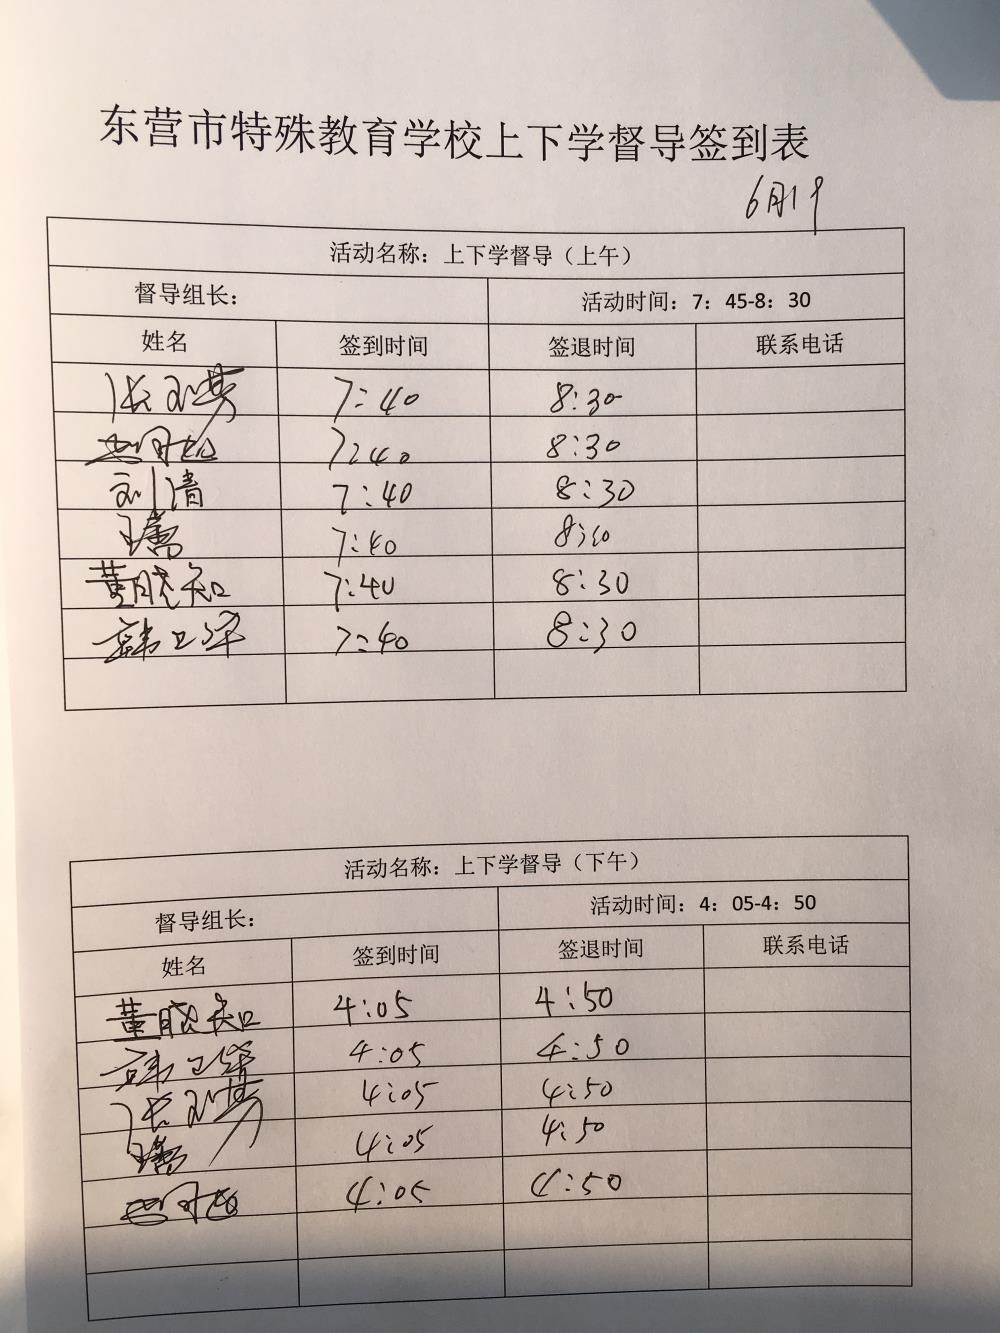 东营市特殊教育学校上下学督导签到表
6月19
活动名称：上下学督导（上午）
督导组长： 活动时间：7：45-8：30
姓名 签到时间 签退时间 联系电话
7:40 8:30
7:40 8:30
刘清 7:40 8:30
7:40 8:30
董晓知 7:40 8:30
韩卫华 7:40 8:30
活动名称：上下学督导（下午）
督导组长： 活动时间：4：05-4：50
姓名 签到时间 签退时间 联系电话
董晓知 4:05 4:50
韩卫华 4:05 4:50
4:05 4:50
4:05 4:50
4:05 4:50